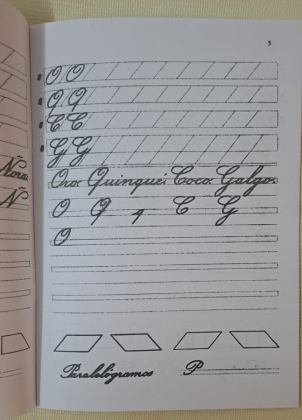 5
O O
Q Q
C C
G G
Oro. Quinqué. Coco. Galgo.
O Q q C G
O
Paralelógramos P
Ñ